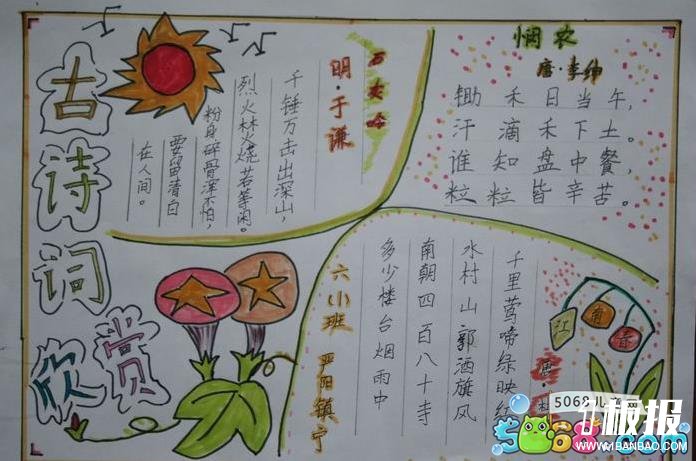 古诗词
欣赏
石灰吟
明·于谦
千锤万击出深山，
烈火焚烧若等闲。
粉身碎骨浑不怕，
要留清白
在人间。
悯农
唐·李绅
锄禾日当午，
汗滴禾下土。
谁知盘中餐，
粒粒皆辛苦。
江南春
唐·杜
千里莺啼绿映红
水村山郭酒旗风
南朝四百八十寺
多少楼台烟雨中
六（小）班
严阳镇宁
5068儿童网
5068.com
板报
WWW.1BANBAO.COM